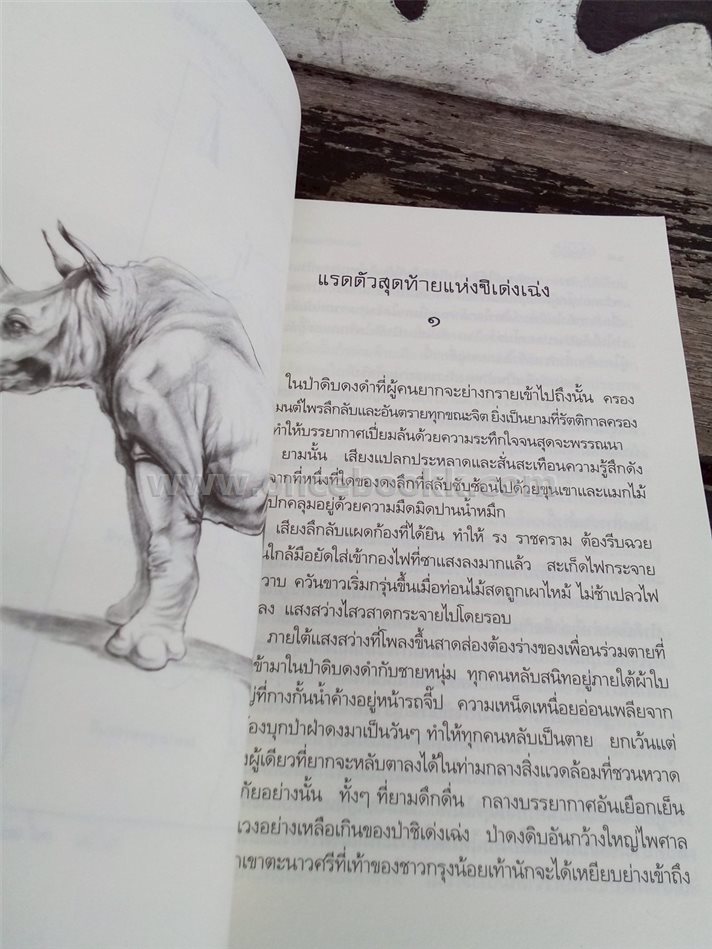 แรดตัวสุดท้ายแห่งซิเด่งเฉ่ง
๑
ในป่าดิบดงดำที่ผู้คนยากจะย่างกรายเข้าไปถึงนั้น ครอง
มนต์ไพรลึกลับและอันตรายทุกขณะจิต ยิ่งเป็นยามที่รัตติกาลครอง
ทำให้บรรยากาศเปี่ยมล้นด้วยความระทึกใจจนสุดจะพรรณนา
ยามนั้น เสียงแปลกประหลาดและสั่นสะเทือนความรู้สึกดัง
จากที่หนึ่งที่ใดของดงลึกที่สลับซับซ้อนไปด้วยขุนเขาและแมกไม้
ปกคลุมอยู่ด้วยความมืดมิดปานน้ำหมึก
เสียงลึกลับแผดก้องที่ได้ยิน ทำให้ รง ราชคราม ต้องรีบฉวย
ใกล้มือยัดใส่เข้ากองไฟที่ซาแสงลงมากแล้ว สะเก็ดไฟกระจาย
วาบ ควันขาวเริ่มกรุ่นขึ้นเมื่อท่อนไม้สดถูกเผาไหม้ ไม่ช้าเปลวไฟ
ลง แสงสว่างไสวสาดกระจายไปโดยรอบ
ภายใต้แสงสว่างที่โพลงขึ้นสาดส่องต้องร่างของเพื่อนร่วมตายที่
เข้ามาในป่าดิบดงดำกับชายหนุ่ม ทุกคนหลับสนิทอยู่ภายใต้ผ้าใบ
ที่กางกั้นน้ำค้างอยู่หน้ารถจี๊ป ความเหน็ดเหนื่อยอ่อนเพลียจาก
บุกป่าฝ่าดงมาเป็นวันๆ ทำให้ทุกคนหลับเป็นตาย ยกเว้นแต่
ผู้เดียวที่ยากจะหลับตาลงได้ในท่ามกลางสิ่งแวดล้อมที่ชวนหวาด
ภัยอย่างนั้น ทั้งๆ ที่ยามดึกดื่น กลางบรรยากาศอันเยือกเย็น
เวงอย่างเหลือเกินของป่าซิเด่งเฉ่ง ป่าดงดิบอันกว้างใหญ่ไพศาล
เขาตะนาวศรีที่เท้าของชาวกรุงน้อยเท้านักจะได้เหยียบย่างเข้าถึง